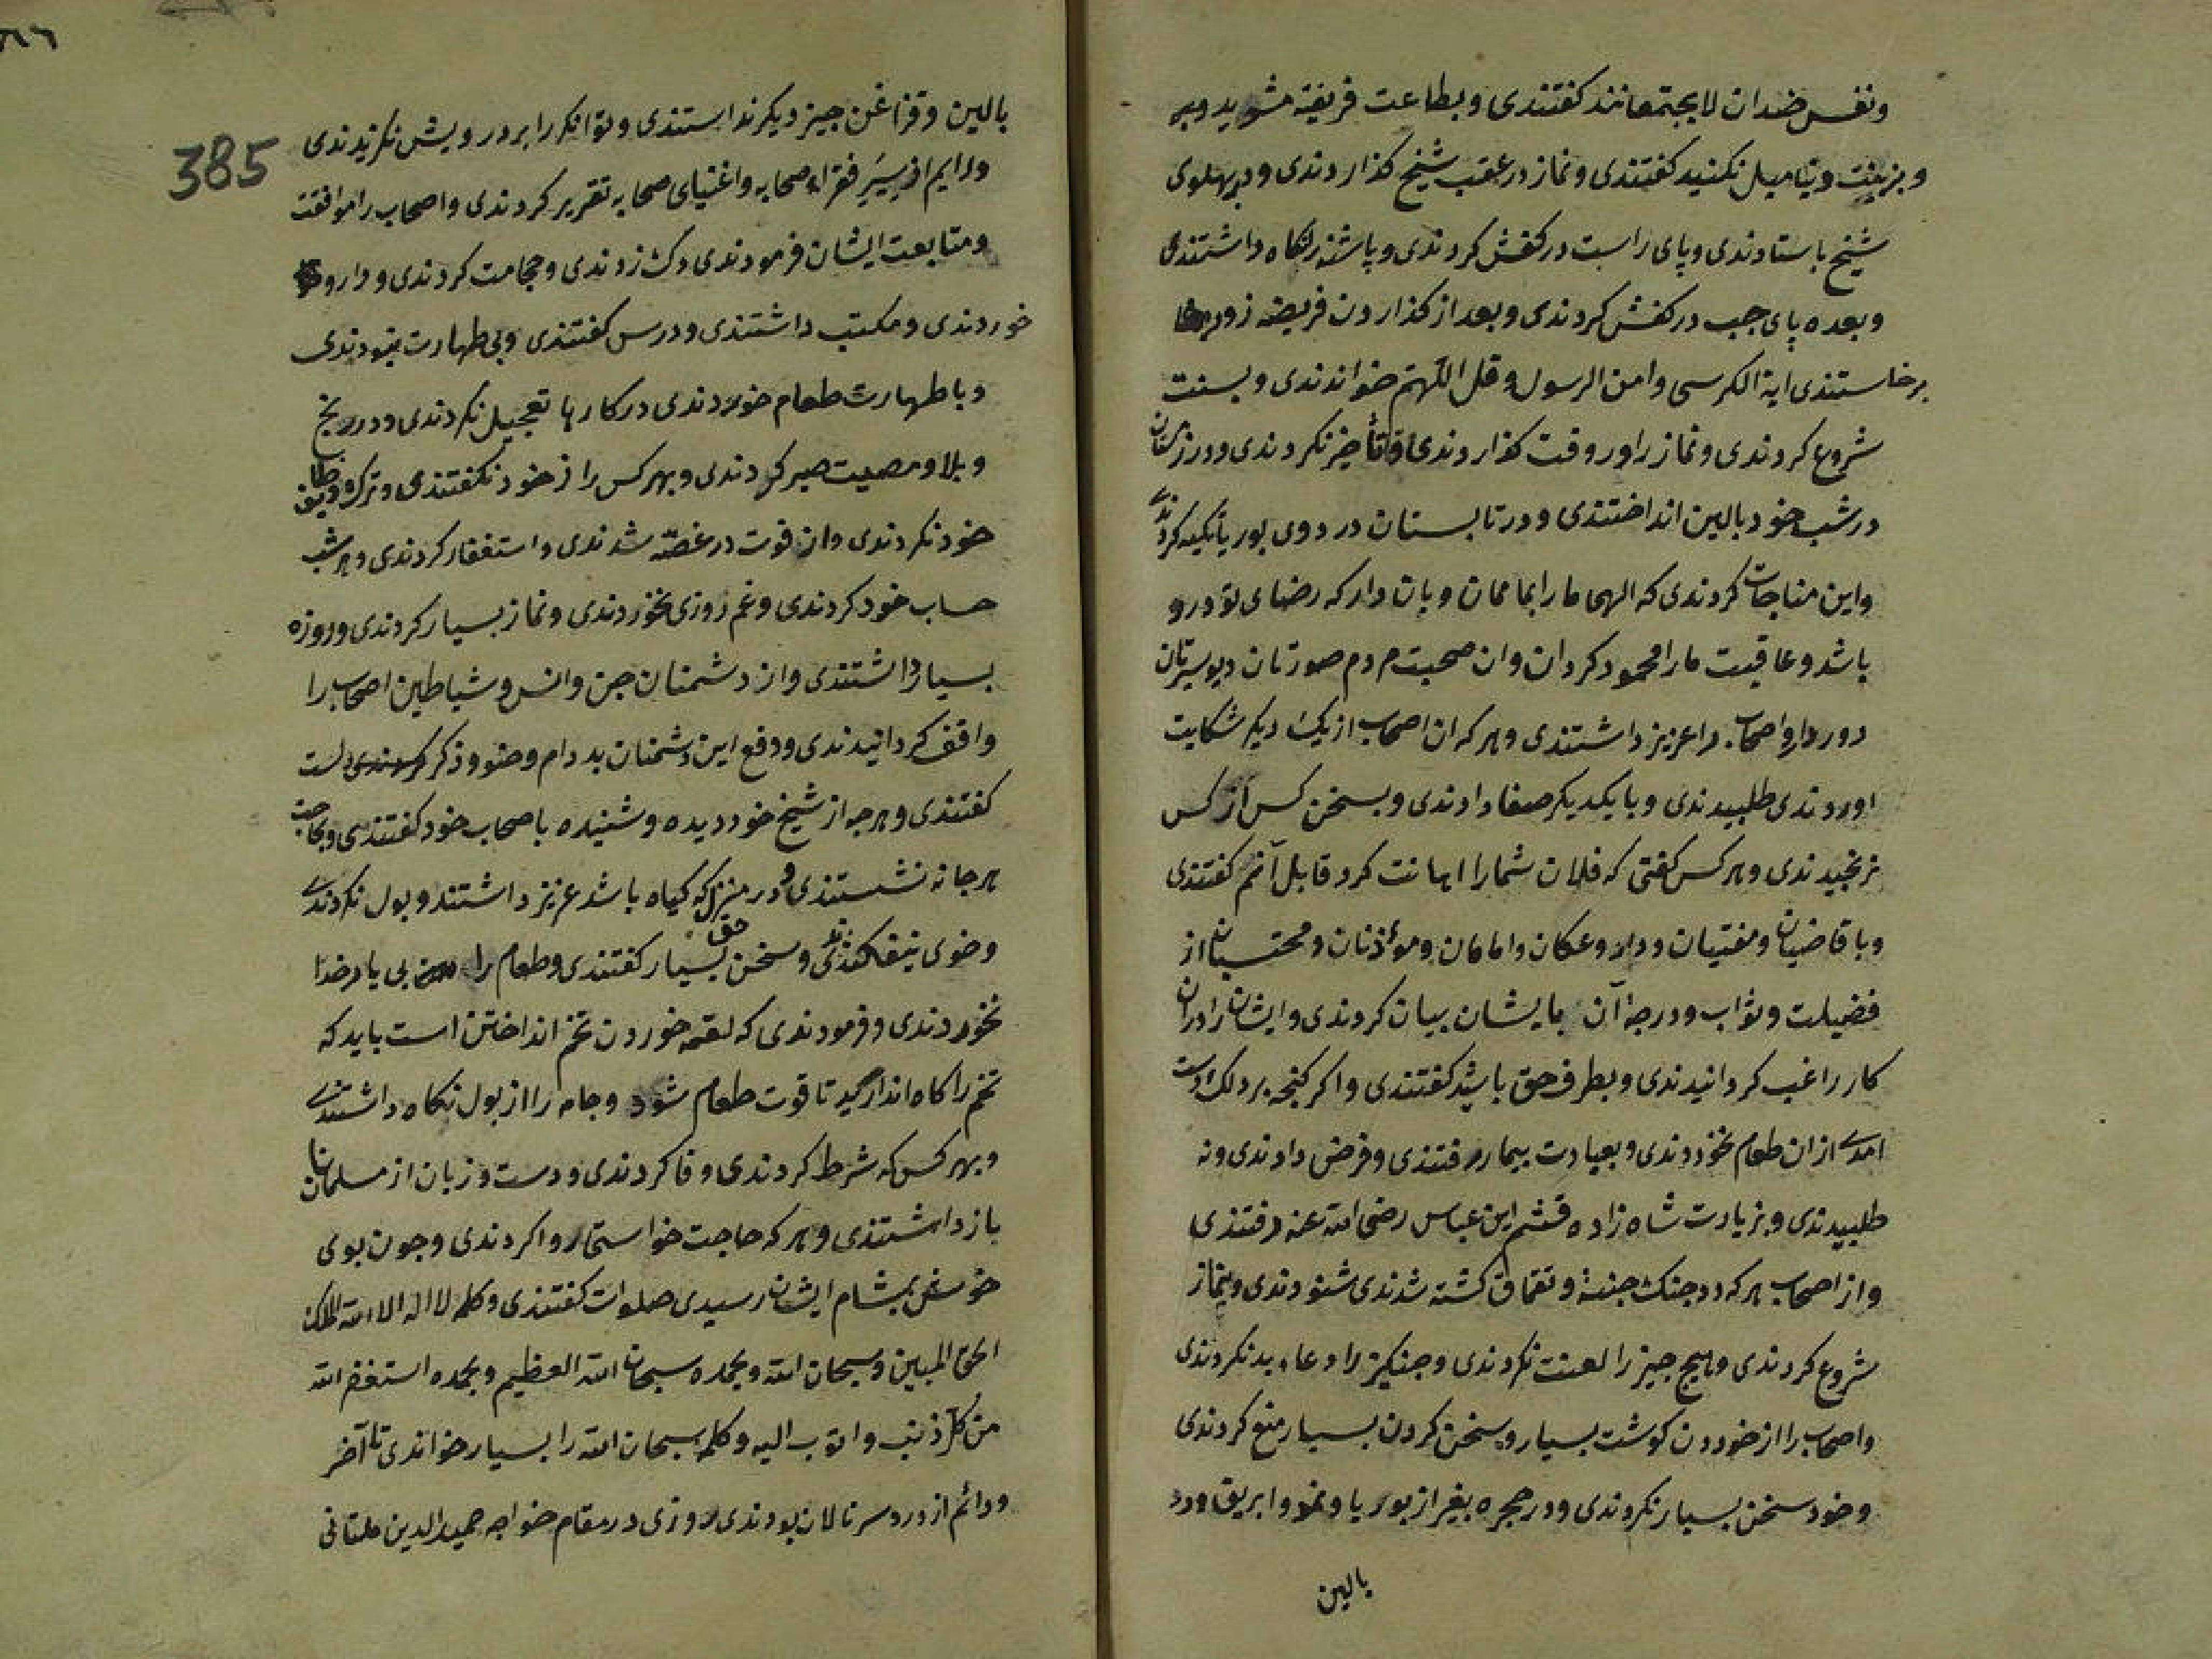 ونفس ضدان لا یجتمعانند کفتندی وبطاعت فریفته مشوید وبر
وبزینت دنیا میل نکنید کفتندی ونماز در عقب شیخ کذاردندی ودر پهلوی
شیخ باستادندی وپای راست در کفش کردندی وپاشنه نکاه داشتندی
وبعده پای جب در کفش کردندی وبعد از کذاردن فریضه زود
برخاستندی ایة الکرسی وامن الرسول وقل اللهم خواندندی وبسنت
شروع کردندی ونماز را در وقت کذاردندی وتأخیر نکردندی ودر زمستان
در شب خود بالین انداختندی ودر تابستان در روی بوریا تکیه کردندی
واین مناجات کردندی که الهی ما را بما ممان وبان دار که رضای تو درو
باشد وعاقبت ما را محمود کردان وان صحبت مردم صورتان دیوسیرتان
دور دار واصحاب را عزیز داشتندی وهر که ان اصحاب از یک دیکر شکایت
اوردندی طلبیدندی وبا یکدیکر صفا دادندی وبسخن کس از کس
نرنجیدندی وهر کس کفتی که فلان شما را اهانت کرد قابل آنم کفتندی
وبا قاضیان ومفتیان ودار وعکان وامامان ومؤذنان ومحتسبان از
فضیلت وثواب ودرجهٔ آن بایشان بیان کردندی وایشان را در ان
کار راغب کردانیدندی وبطرف حق باشید کفتندی واکر کنجه بر دلک راست
امدی از ان طعام نخوردندی وبعیادت بیمار رفتندی وقرض دادندی ونه
طلبیدندی وبزیارت شاه زاده قثم ابن عباس رضی الله عنه رفتندی
واز اصحاب هر که در جنک جنته وتقماق کشته شدندی شنودندی وبنماز
شروع کردندی وهیج جیز را لعنت نکردندی وجنکیز را دعاء بد نکردندی
واصحاب را از خوردن کوشت بسیار وسخن کردن بسیار منع کردندی
وخود سخن بسیار نکردندی ودر حجره بغیر از بوریا ونمد وابریق ودرد
بالین
385
بالین وقزاغن جیز دیکر نداستندی وتوانکر را بر درویش نکزیدندی
ودایم از سیر فقراء صحابه واغنیای صحابه تقریر کردندی واصحاب را موافقت
ومتابعت ایشان فرمودندی ورک زدندی وحجامت کردندی ودارو
خوردندی ومکتب داشتندی ودرس کفتندی وبی طهارت نبودندی
وبا طهارت طعام خوردندی در کارها تعجیل نکردندی ودر رنج
وبلا ومصیبت صبر کردندی وبهر کس راز خود نکفتندی وترک وظایف
خود نکردندی واز فوت در غصّه شدندی واستغفار کردندی وهر شب
حساب خود کردندی وغم روزی نخوردندی ونماز بسیار کردندی وروزه
بسیار داشتندی واز دشمنان جن وانس وشیاطین اصحاب را
واقف کردانیدندی ودفع این دشمنان بدوام وضو وذکر است
کفتندی وهرجه از شیخ خود دیده وشنیده باصحاب خود کفتندی وبحاجت
هر جا نه نشستندی ودر منزل که کیاه باشد عزیز داشتند وبول نکردندی
وضوی نیفکندندی وسخن حق بسیار کفتندی وطعام را بی یاد خدا
نخوردندی وفرمودندی که لقمه خوردن تخم انداختن است باید که
تخم را کاه اندارید تا قوت طعام شود وجامه را از بول نکاه داشتندی
وبهر کس که شرط کردندی وفا کردندی ودست وزبان از مسلمانان
باز داشتندی وهر که حاجت خواستی روا کردندی وجون بوی
خوش بمشام ایشان رسیدی صلوات کفتندی وکلمه لا اله الا الله الملک
الحق المبین وسبحان الله وبحمده سبحان الله العظیم وبحمده استغفر الله
من کل ذنب واتوب الیه وکلمه سبحان الله را بسیار خواندی تا آخر
ودائم از درد سر نالان بودندی روزی در مقام خواجه حمید الدین ملتانی